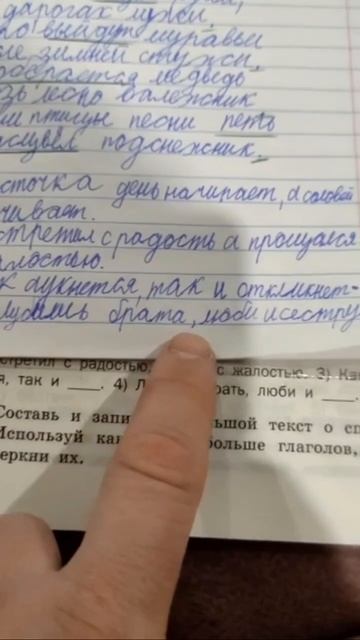 дарогах лужи.
выйдут муравьи
зимней стужи.
медведь
валежник
птицы песни петь
подснежник.
день начинает, а соловей
стретил с радость а прощался
алостью.
к аукнется, так и откликнет-
брата, люби и сестру
стретил с радостью, с жалостью. 3) Ка
я, так и ___. 4) Л рать, люби и ___.
Составь и запи ьшой текст о сп
Используй ка больше глаголов,
еркни их.